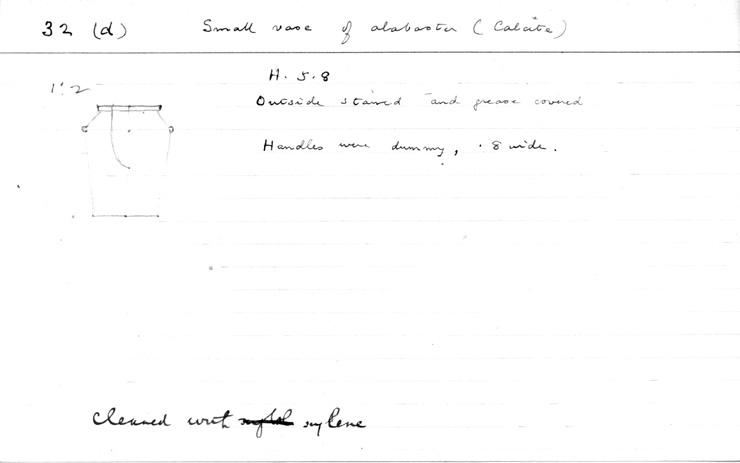 32 (d) Small vase of alabaster (Calcite)
H. 5.8
1:2
Outside stained and grease covered
Handles were dummy, .8 wide.
Cleaned with xylene